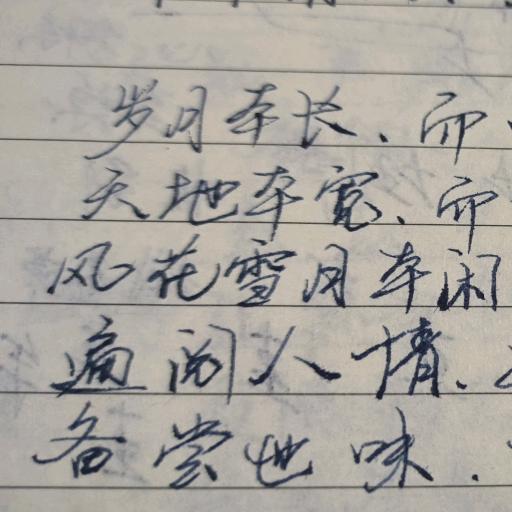 岁月本长、而
天地本宽、而
风花雪月本闲
遍阅人情.
备尝世味.